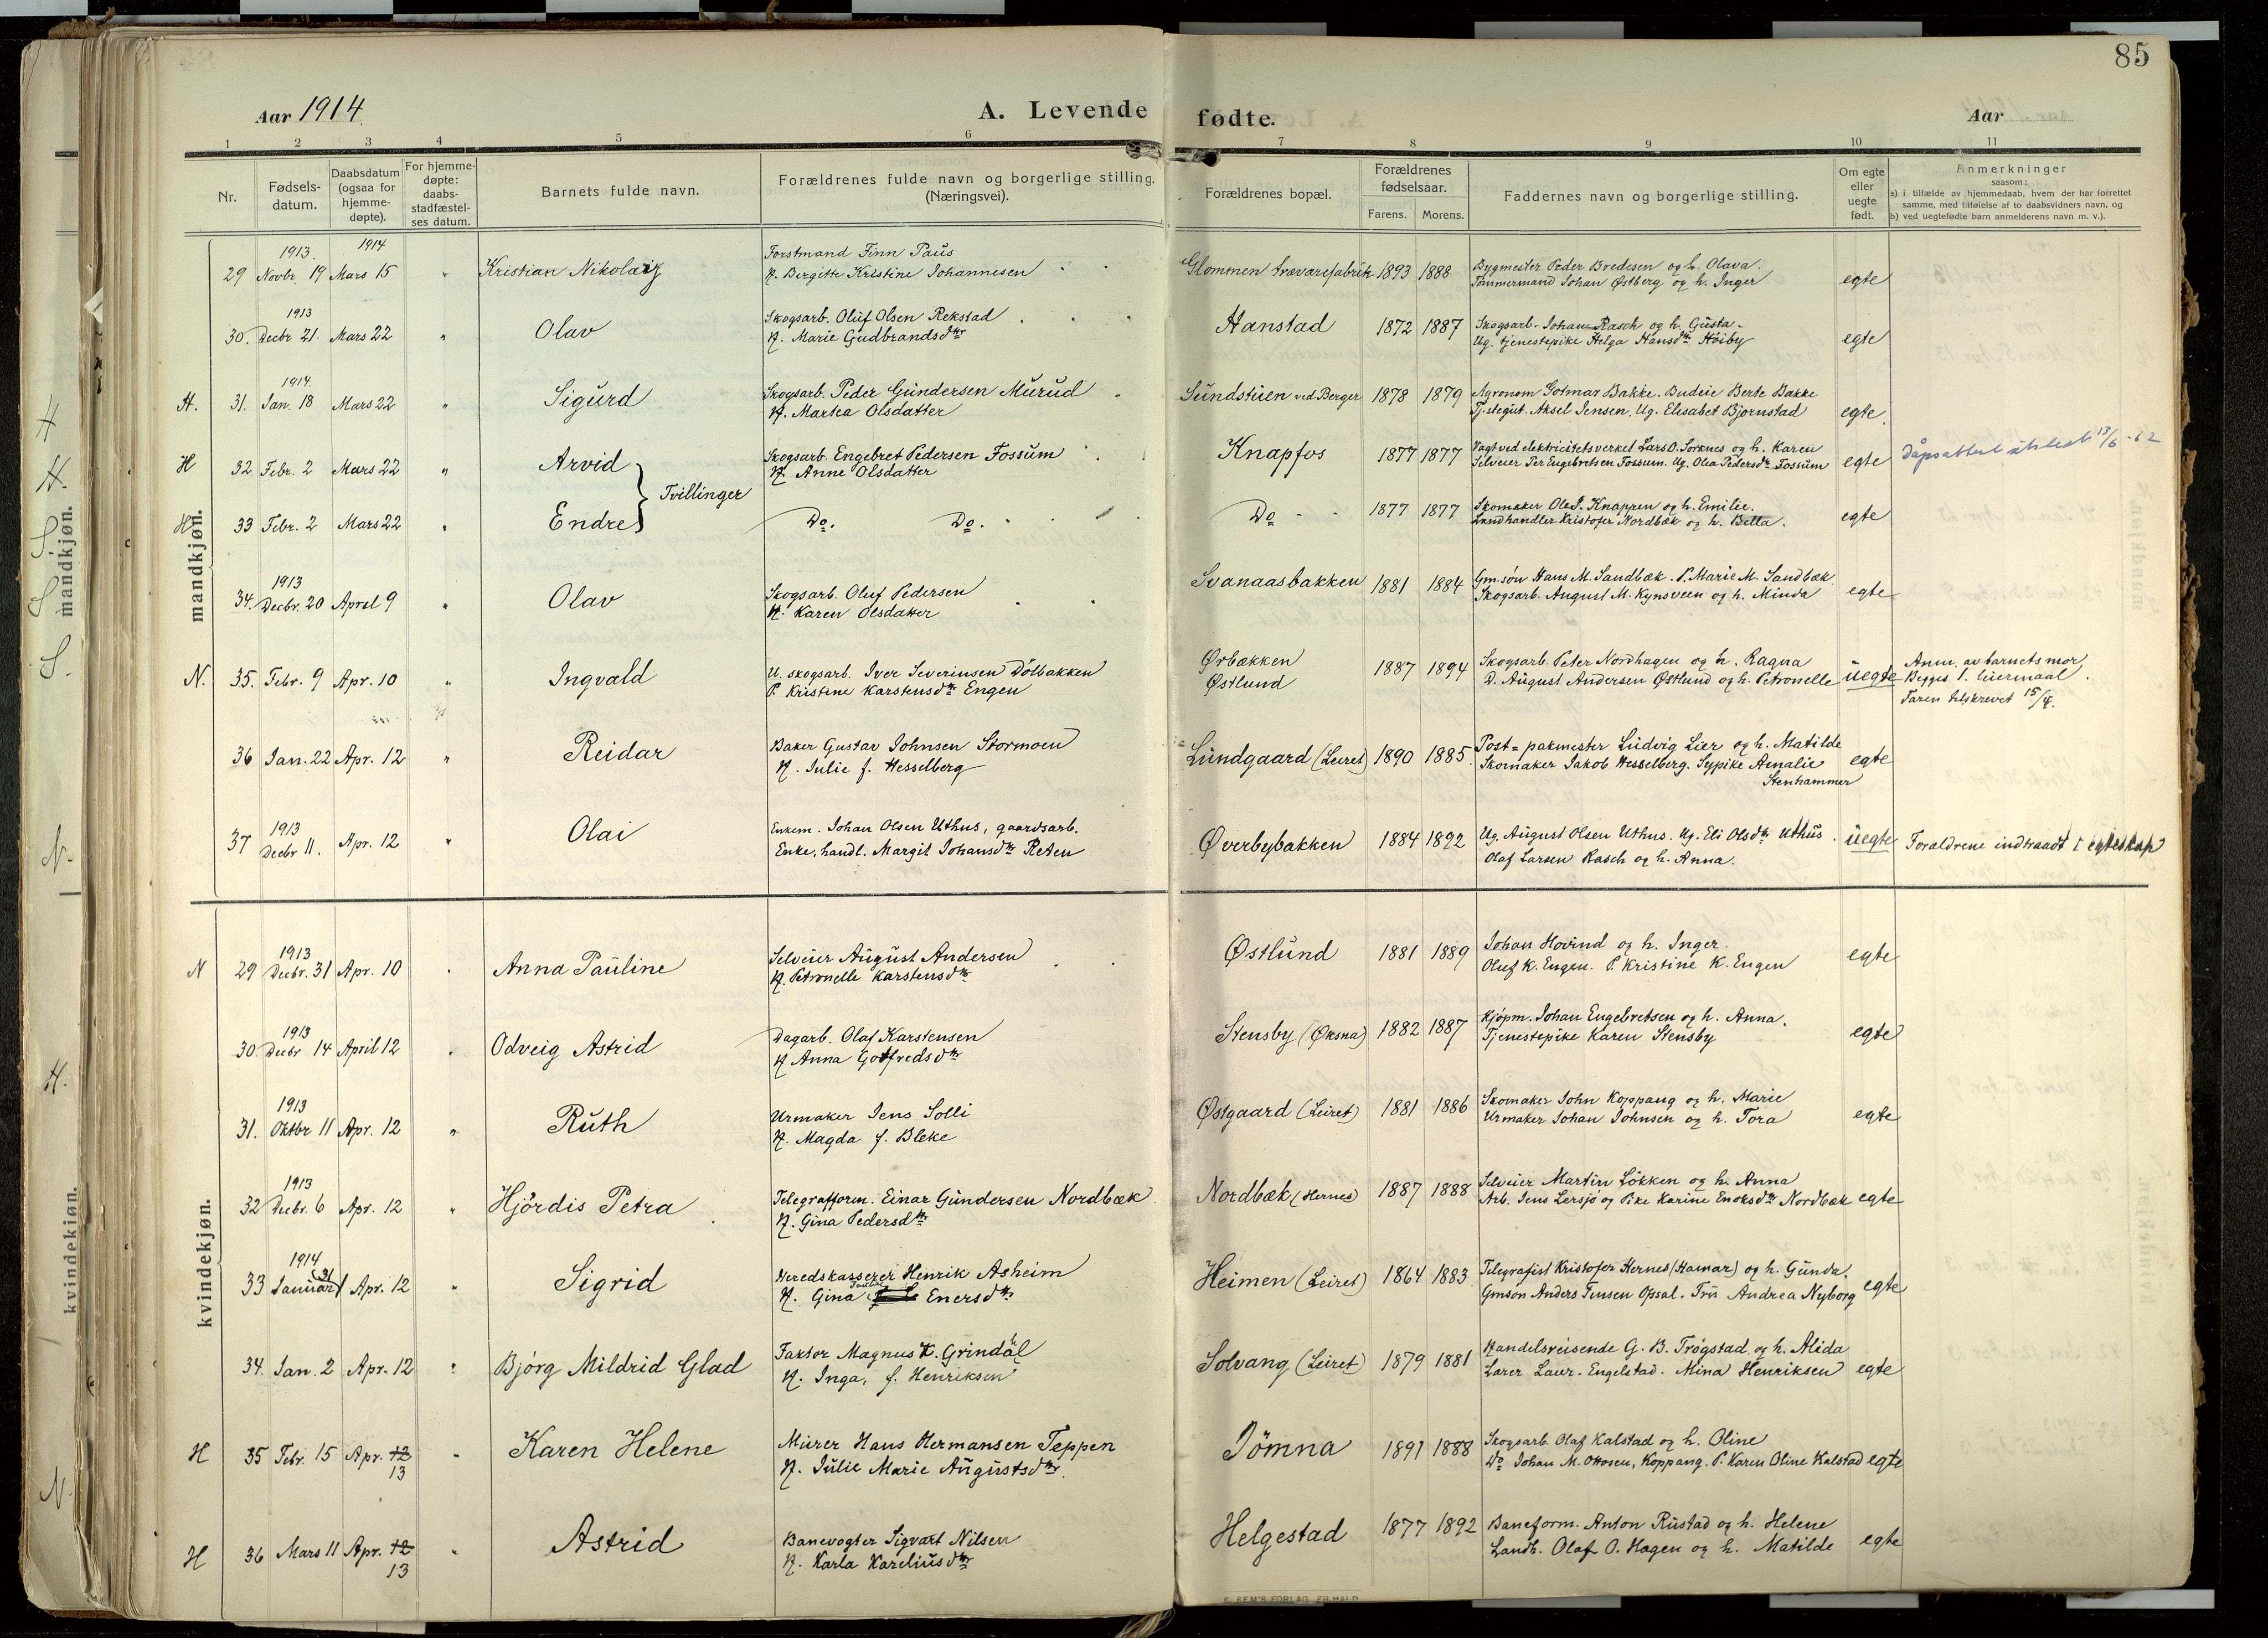 85
Aar 1914.
A. Levende fødte.
Aar
1 2 3 4 5 6 7 8 9 10 11
Nr.
Fødsels-
datum.
Daabsdatum
(ogsaa for
hjemme-
døpte).
For hjemme-
døpte:
daabs-
stadfæstel-
ses datum.
Barnets fulde navn.
Forældrenes fulde navn og borgerlige stilling.
(Næringsvei).
Forældrenes bopæl.
Forældrenes
fødselsaar.
Farens. Morens.
Faddernes navn og borgerlige stilling.
Om egte
eller
uegte
født.
Anmerkninger
saasom:
a) i tilfælde av hjemmedaab, hvem der har forrettet
samme, med tilføielse af to daabsvidners navn, og
b) ved uegtefødte barn anmelderens navn m. v.).
mandkjøn.
1913. 1914
29 Novbr. 19 Mars 15 " Kristian Nikolai
Forstmand Finn Paus
H. Bergitte Kristine Johannesen
Glommen trævarefabrik 1893 1888
Bygmester Peder Bredesen og h. Olava.
Tømmermand Johan Østberg og h. Inger
egte
1913
30. Decbr 21. Mars 22 " Olav
Skogsarb. Oluf Olsen Rekstad
H. Marie Gudbrandsdtr
Hanstad 1872 1887
Skogsarb. Johan Rasch og h. Gusta.
Ug. tjenestepike Helga Hansdtr Høiby
egte
1914.
H. 31. Jan. 18 Mars 22 " Sigurd
Skogsarb. Peder Gundersen Murud
H. Martea Olsdatter
Sundstuen ved Berger 1878 1879
Agronom Gotmar Bakke. Budeie Berte Bakke
Tj.stegut. Aksel Jensen. Ug. Elisabet Bjørnstad
egte.
H 32 Febr. 2 Mars 22 " Arvid
Tvillinger
Skogsarb. Engebret Pedersen Fossum
H. Anne Olsdatter
Knapfos 1877 1877
Vagt ved elektricitetsverket Lars O. Sorknes og h. Karen
Selveier Per Engebretsen Fossum. Ug. Olea Pedersdtr Fossum
egte
Dåpsattest utstedt 13/6-62
H 33 Febr. 2 Mars 22 " Endre
Do. Do.
Do 1877 1877
Skomaker Ole J. Knappen og h. Emilie.
Landhandler Kristofer Nordbæk og h. Betta.
egte
1913
34. Decbr. 20 April 9 " Olav
Skogsarb. Oluf Pedersen
H. Karen Olsdatter
Svanaasbakken 1881 1884
Gm.søn Hans M. Sandbæk. P. Marie M. Sandbæk
Skogsarb. August M. Kynsveen og h. Minda
egte
N. 35. Febr. 9 Apr. 10 " Ingvald
U. skogsarb. Iver Severinsen Dölbakken
P. Kristine Karstensdtr Engen
Ørbækken
Østlund
1887 1894
Skogsarb. Peter Nordhagen og h. Ragna
D. August Andersen Østlund og h. Petronelle
uegte
Anm. av barnets mor
Begges 1. leiermaal.
Faren tilskrevet 15/4.
36 Jan. 22 Apr. 12 " Reidar
Baker Gustav Johnsen Stormoen
H. Julie f. Hesselberg
Lundgaard (Leiret) 1890 1885.
Post= pakmester Ludvig Lier og h. Matilde
Skomaker Jakob Hesselberg. Sypike Amalie
Stenhammer
egte
1913
37 Decbr 11. Apr. 12 " Olai
Enkem. Johan Olsen Uthus, gaardsarb.
Enke, handl. Margit Johansdtr Reten
Øverbybakken 1884 1892
Ug. August Olsen Uthus. Ug. Eli Olsdtr Uthus.
Olaf Larsen Rasch og h. Anna.
uegte
Forældrene indtraadt i egteskap
kvindekjøn.
1913
N 29 Decbr. 31 Apr. 10 " Anna Pauline
Selveier August Andersen
H. Petronelle Karstensdtr
Østlund 1881 1889
Johan Hovind og h. Inger.
Oluf K. Engen. P. Kristine K. Engen
egte
1913
30 Decbr 14 April 12 " Odveig Astrid
Dagarb. Olaf Karstensen
H Anna Gotfredsdtr
Stensby (Øksna) 1882 1887
Kjøpm. Johan Engebretsen og h. Anna.
Tjenestepike Karen Stensby
egte
1913
31. Oktbr 11 Apr. 12 " Ruth
Urmaker Jens Solli
H. Magda f. Bleke
Østgaard (Leiret) 1881 1886
Skomaker John Koppang og h. Marie
Urmaker Johan Johnsen og h. Tora
egte
1913
32 Decbr. 6 Apr. 12 " Hjördis Petra
Telegrafform. Einar Gundersen Nordbæk
H. Gina Pedersdtr
Nordbæk (Hernes) 1887 1888
Selveier Martin Løkken og h. Anna
Arb. Jens Lersjø og Pike Karine Enoksdtr Nordbæk
egte
1914
33 Januar 31 Apr. 12 " Sigrid
Heredskasserer Henrik Asheim
H. Gina Enersdtr
Heimen (Leiret) 1864 1883
Telegrafist Kristofer Hernes (Hamar) og h. Gunda.
Gmsøn Anders Jensen Opsal. Frü Andrea Nyborg
egte
34. Jan. 2 Apr. 12 " Bjørg Mildrid Glad
Faktor Magnus K. Grindahl
H. Inga, f. Henriksen
Solvang (Leiret) 1879 1881
Handelsreisende G. B. Trøgstad og h. Alida
Lærer Laur. Engelstad. Mina Henriksen
egte
H 35 Febr. 15 Apr. 12
13
Karen Helene
Murer Hans Hermansen Teppen
H. Julie Marie Augustsdtr.
Jømna 1891 1888
Skogsarb. Olaf Kalstad og h. Oline
Do Johan M. Ottosen, Koppang. P. Karen Oline Kalstad
egte
H 36 Mars 11 Apr. 12
13
Astrid
Banevogter Sigvart Nilsen
H. Karla Kareliusdtr
Helgestad 1877 1892
Baneform. Anton Rustad og h. Helene
Landh. Olaf O. Hagen og h. Matilde
egte
E. SEM'S FORLAG, FR.HALD